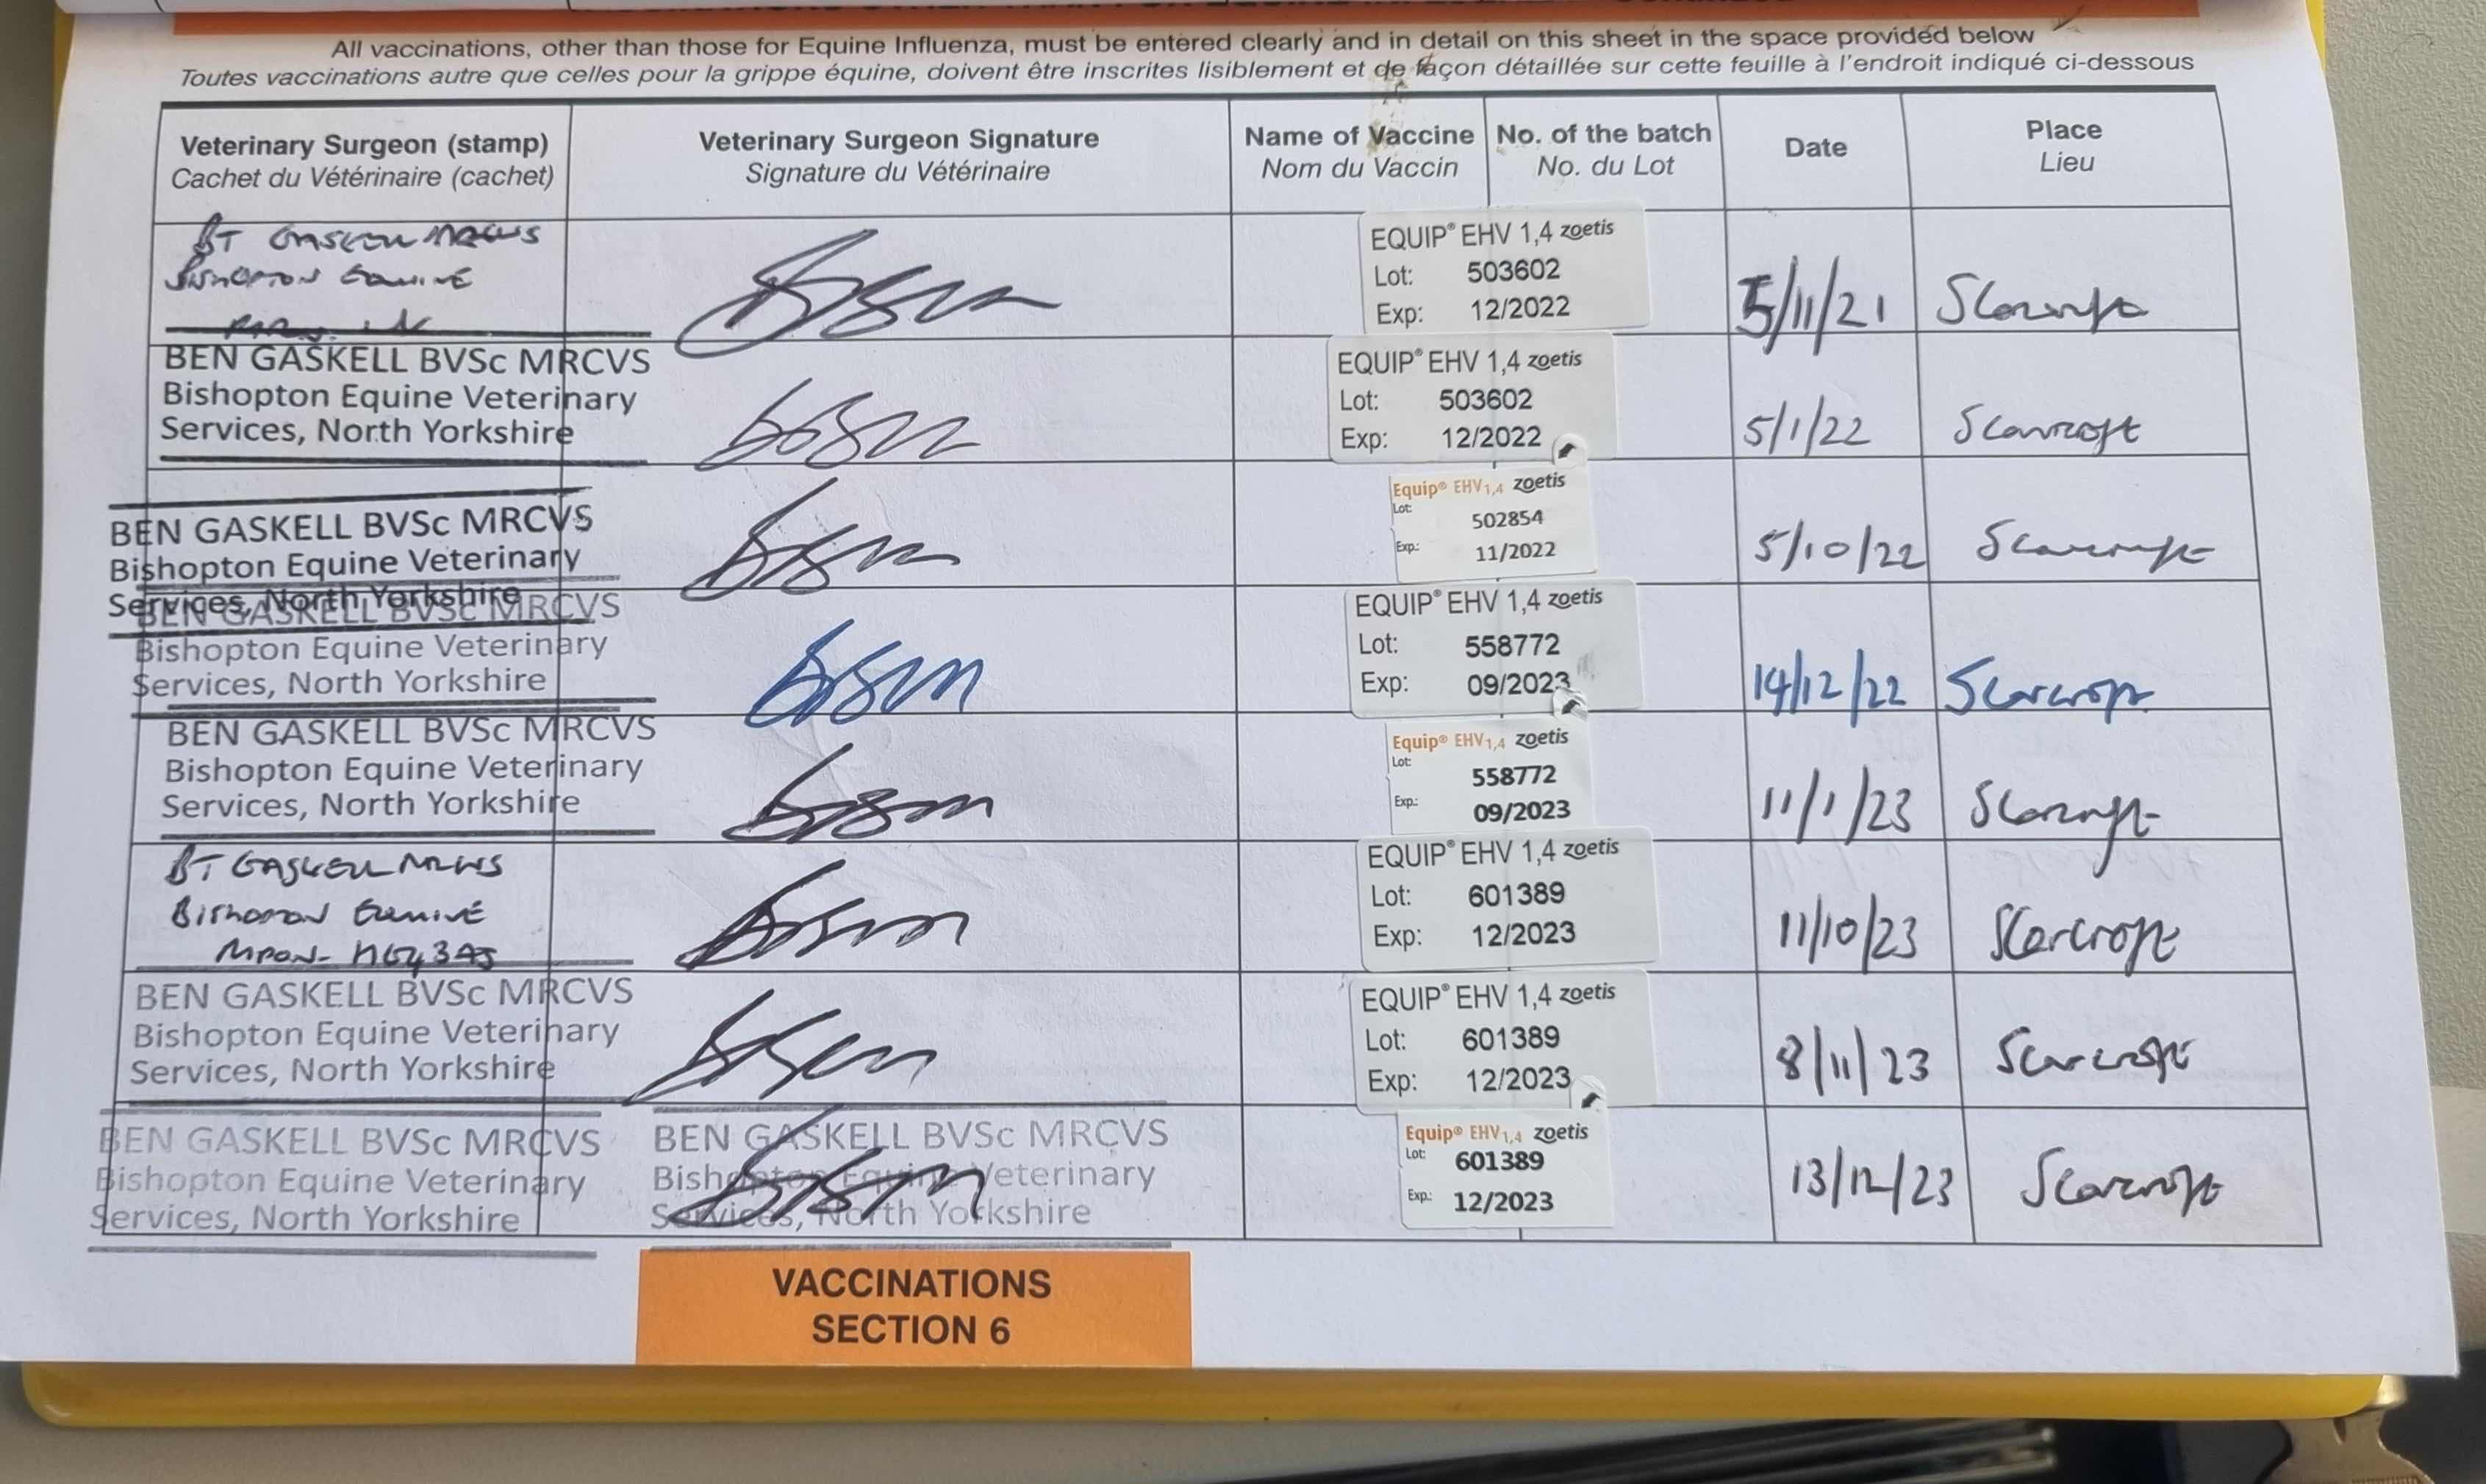 All vaccinations, other than those for Equine Influenza, must be entered clearly and in detail on this sheet in the space provided below
Toutes vaccinations autre que celles pour la grippe équine, doivent être inscrites lisiblement et de façon détaillée sur cette feuille à l'endroit indiqué ci-dessous
Veterinary Surgeon (stamp)
Cachet du Vétérinaire (cachet)
Veterinary Surgeon Signature
Signature du Vétérinaire
Name of Vaccine
Nom du Vaccin
No. of the batch
No. du Lot
Date
Place
Lieu
BT GASKELL MRCVS
BISHOPTON EQUINE
EQUIP® EHV 1,4 zoetis
Lot: 503602
Exp: 12/2022
5/11/21
Scarcroft
BEN GASKELL BVSc MRCVS
Bishopton Equine Veterinary
Services, North Yorkshire
EQUIP® EHV 1,4 zoetis
Lot: 503602
Exp: 12/2022
5/1/22
Scarcroft
BEN GASKELL BVSc MRCVS
Bishopton Equine Veterinary
Services, North Yorkshire
Equip® EHV1,4 zoetis
Lot: 502854
Exp.: 11/2022
5/10/22
Scarcroft
BEN GASKELL BVSc MRCVS
Bishopton Equine Veterinary
Services, North Yorkshire
EQUIP® EHV 1,4 zoetis
Lot: 558772
Exp: 09/2023
14/12/22
Scarcroft
BEN GASKELL BVSc MRCVS
Bishopton Equine Veterinary
Services, North Yorkshire
Equip® EHV1,4 zoetis
Lot: 558772
Exp.: 09/2023
11/1/23
Scarcroft
BT GASKELL MRCVS
BISHOPTON EQUINE
RIPON HG4 3AS
EQUIP® EHV 1,4 zoetis
Lot: 601389
Exp: 12/2023
11/10/23
Scarcroft
BEN GASKELL BVSc MRCVS
Bishopton Equine Veterinary
Services, North Yorkshire
EQUIP® EHV 1,4 zoetis
Lot: 601389
Exp: 12/2023
8/11/23
Scarcroft
BEN GASKELL BVSc MRCVS
Bishopton Equine Veterinary
Services, North Yorkshire
BEN GASKELL BVSc MRCVS
Bishopton Equine Veterinary
Services, North Yorkshire
Equip® EHV1,4 zoetis
Lot: 601389
Exp.: 12/2023
13/12/23
Scarcroft
VACCINATIONS
SECTION 6